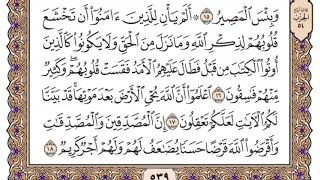 وَبِئْسَ ٱلْمَصِيرُ ۝١٥ أَلَمْ يَأْنِ لِلَّذِينَ ءَامَنُوٓا۟ أَن تَخْشَعَ
قُلُوبُهُمْ لِذِكْرِ ٱللَّهِ وَمَا نَزَلَ مِنَ ٱلْحَقِّ وَلَا يَكُونُوا۟ كَٱلَّذِينَ
أُوتُوا۟ ٱلْكِتَـٰبَ مِن قَبْلُ فَطَالَ عَلَيْهِمُ ٱلْأَمَدُ فَقَسَتْ قُلُوبُهُمْ ۖ وَكَثِيرٌ
مِّنْهُمْ فَـٰسِقُونَ ۝١٦ ٱعْلَمُوٓا۟ أَنَّ ٱللَّهَ يُحْىِ ٱلْأَرْضَ بَعْدَ مَوْتِهَا ۚ قَدْ بَيَّنَّا
لَكُمُ ٱلْـَٔايَـٰتِ لَعَلَّكُمْ تَعْقِلُونَ ۝١٧ إِنَّ ٱلْمُصَّدِّقِينَ وَٱلْمُصَّدِّقَـٰتِ
وَأَقْرَضُوا۟ ٱللَّهَ قَرْضًا حَسَنًا يُضَـٰعَفُ لَهُمْ وَلَهُمْ أَجْرٌ كَرِيمٌ ۝١٨
٥٣٩